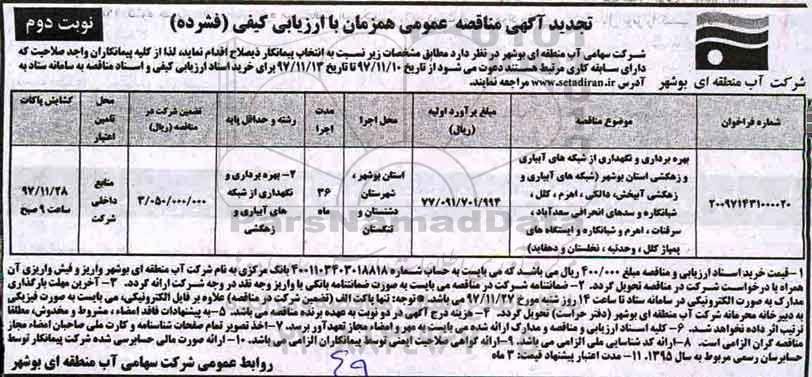 تجدید آگهی مناقصه عمومی همزمان با ارزیابی کیفی (فشرده)
نوبت دوم
شرکت آب منطقه ای بوشهر
شرکت سهامی آب منطقه ای بوشهر در نظر دارد مطابق مشخصات زیر نسبت به انتخاب پیمانکار ذیصلاح اقدام نماید لذا از کلیه پیمانکاران واجد صلاحیت که
دارای سابقه کاری مرتبط هستند دعوت می شود از تاریخ ۹۷/۱۱/۱۰ تا تاریخ ۹۷/۱۱/۱۳ برای خرید اسناد ارزیابی کیفی و اسناد مناقصه به سامانه ستاد به
آدرس www.setadiran.ir مراجعه نمایند.
شماره فراخوان
موضوع مناقصه
مبلغ برآورد اولیه (ریال)
محل اجرا
مدت اجرا
رشته و حداقل پایه
تضمین شرکت در مناقصه (ریال)
محل تامین اعتبار
کشایش پاکات
۲۰۰۹۷۱۴۳۱۰۰۰۰۲۰
بهره برداری و نگهداری از شبکه های آبیاری
و زهکشی استان بوشهر (شبکه های آبیاری و
زهکشی آبپخش، دالکی ، اهرم ، کلل ،
شبانکاره و سدهای انحرافی سعدآباد ،
سرقنات ، اهرم و شبانکاره و ایستگاه های
پمپاژ کلل ، وحدتیه ، نخلستان و دهقاید)
۷۷/۰۹۱/۷۰۱/۹۹۴
استان بوشهر ،
شهرستان
دشتستان و
تنگستان
۳۶
ماه
۲- بهره برداری و
نگهداری از شبکه
های آبیاری و
زهکشی
۳/۰۵۰/۰۰۰/۰۰۰
منابع
داخلی
شرکت
۹۷/۱۱/۲۸
ساعت ۹ صبح
۱- قیمت خرید اسناد ارزیابی و مناقصه مبلغ ۴۰۰/۰۰۰ ریال می باشد که می بایست به حساب شماره ۴۰۰۱۱۰۳۴۰۳۰۱۸۸۱۸ بانک مرکزی به نام شرکت آب منطقه ای بوشهر واریز و فیش واریزی آن
همراه با درخواست شرکت در مناقصه تحویل گردد. ۲- ضمانتنامه شرکت در مناقصه می بایست به صورت ضمانتنامه بانکی یا واریز وجه نقد در وجه شرکت ارائه گردد. ۳- آخرین مهلت بارگذاری
مدارک به صورت الکترونیکی در سامانه ستاد تا ساعت ۱۴ روز شنبه مورخ ۹۷/۱۱/۲۷ می باشد. * توجه: تنها پاکت الف (تضمین شرکت در مناقصه) علاوه بر فایل الکترونیکی، می بایست به صورت فیزیکی
به دبیرخانه محرمانه شرکت آب منطقه ای بوشهر (دفتر حراست) تحویل گردد. ۴- هزینه درج آگهی در دو نوبت به عهده برنده مناقصه می باشد. ۵- به پیشنهادات فاقد امضاء ، مشروط و مخدوش، مطلقا
ترتیب اثر داده نخواهد شد. ۶- کلیه اسناد ارزیابی و مناقصه و مدارک ارائه شده می بایست به مهر و امضاء مجاز تعهدآور برسد. ۷- اخذ تصویر تمام صفحات شناسنامه و کارت ملی صاحبان امضاء مجاز
مناقصه گران الزامی است. ۸- ارائه کد شناسایی ملی الزامی می باشد. ۹- ارائه گواهی صلاحیت ایمنی توسط پیمانکاران الزامی می باشد. ۱۰- ارائه صورت مالی حسابرسی شده شرکت پیمانکار توسط
حسابرسان رسمی مربوط به سال ۱۳۹۵. ۱۱- مدت اعتبار پیشنهاد قیمت: ۳ ماه
روابط عمومی شرکت سهامی آب منطقه ای بوشهر
ParsNamadData